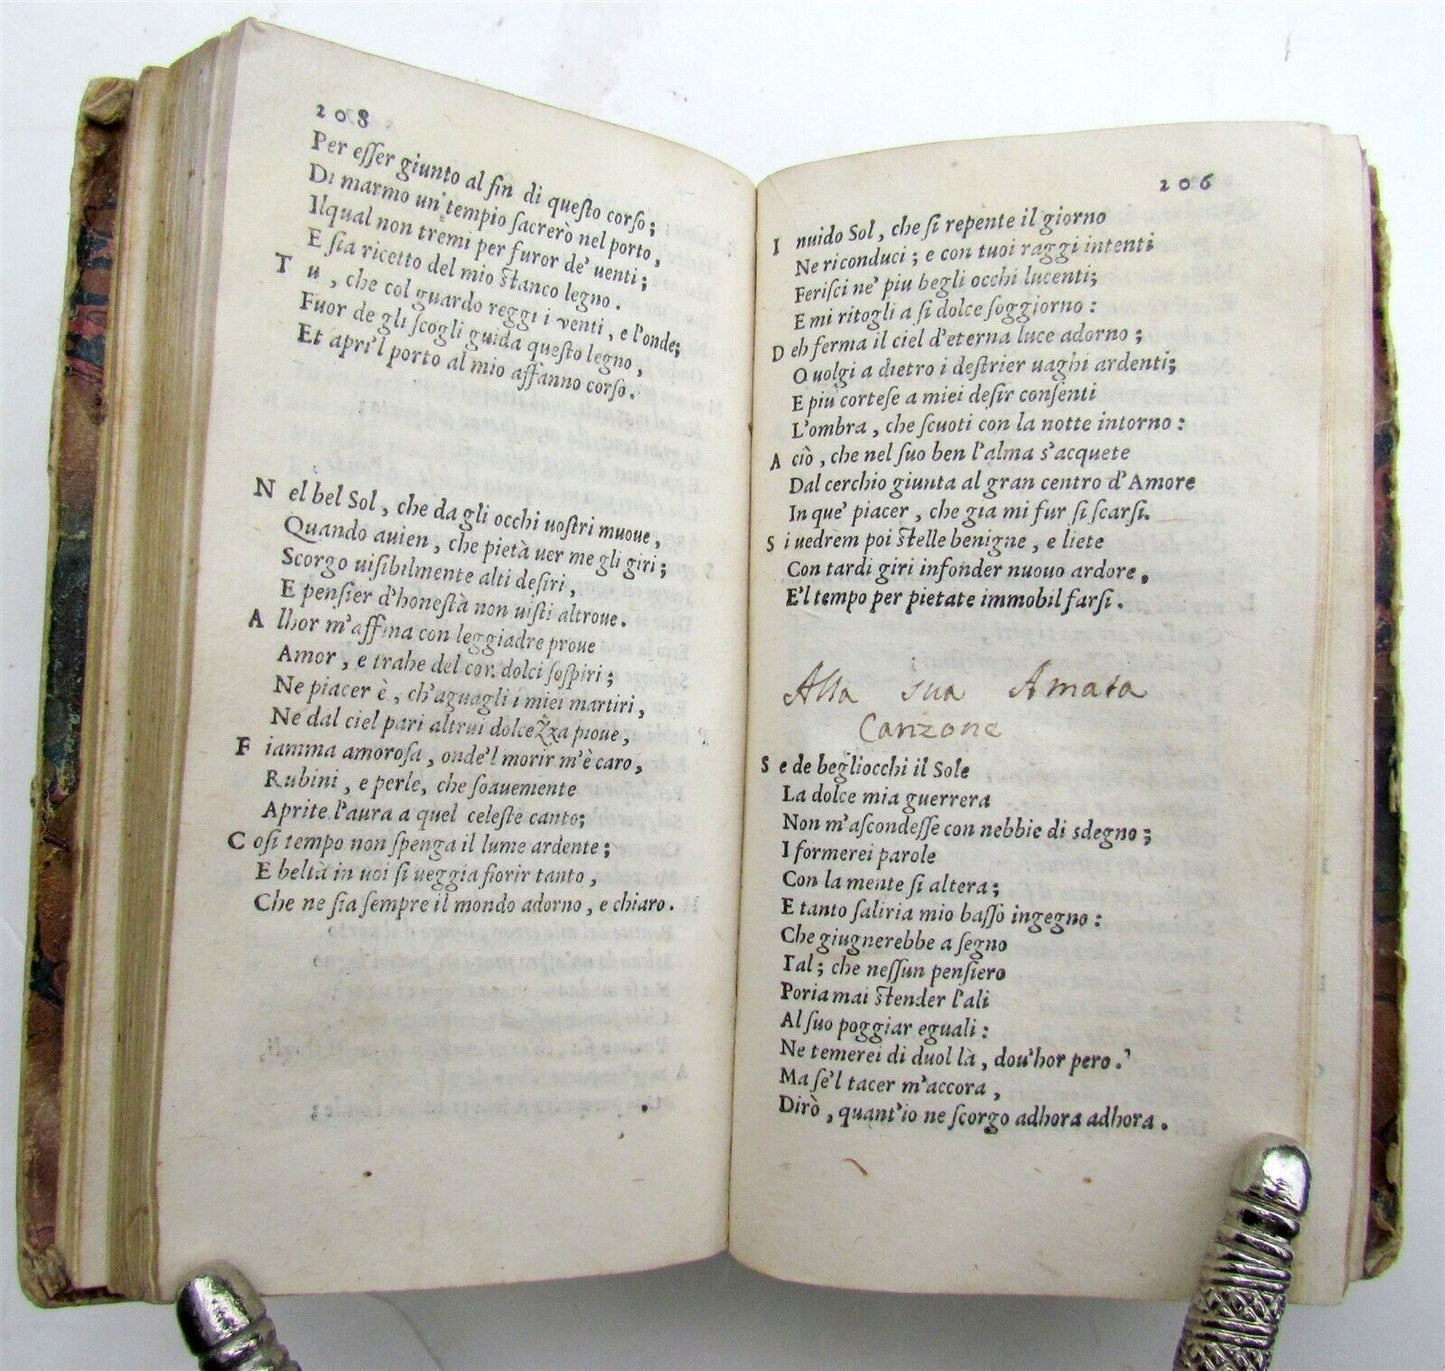 208
Per esser giunto al fin di questo corso;
Di marmo un' tempio sacrerò nel porto,
Ilqual non tremi per furor de' uenti;
E sia ricetto del mio stanco legno.
T u, che col guardo reggi i venti, e l'onde;
Fuor de gli scogli guida questo legno,
Et apri'l porto al mio affanno corso.
N el bel Sol, che da gli occhi uostri muoue,
Quando auien, che pietà uer me gli giri;
Scorgo uisibilmente alti desiri,
E pensier d'honestà non uisti altroue.
A lhor m'affina con leggiadre proue
Amor, e trahe del cor dolci sospiri;
Ne piacer è, ch'aguagli i miei martiri,
Ne dal ciel pari altrui dolcezza pioue,
F iamma amorosa, onde'l morir m'è caro,
Rubini, e perle, che soauemente
Aprite l'aura a quel celeste canto;
C osi tempo non spenga il lume ardente;
E beltà in uoi si ueggia fiorir tanto,
Che ne sia sempre il mondo adorno, e chiaro.
206
I nuido Sol, che si repente il giorno
Ne riconduci; e con tuoi raggi intenti
Ferisci ne' piu begli occhi lucenti;
E mi ritogli a si dolce soggiorno:
D eh ferma il ciel d'eterna luce adorno;
O uolgi a dietro i destrier uaghi ardenti;
E più cortese a miei desir consenti
L'ombra, che scuoti con la notte intorno:
A ciò, che nel suo ben l'alma s'acquete
Dal cerchio giunta al gran centro d'Amore
In que' piacer, che gia mi fur si scarsi.
S i uedrem poi stelle benigne, e liete
Con tardi giri infonder nuouo ardore,
E'l tempo per pietate immobil farsi.
Alla sua Amata
Canzone
S e de begliocchi il Sole
La dolce mia guerrera
Non m'ascondesse con nebbie di sdegno;
I formerei parole
Con la mente si altera;
E tanto saliria mio basso ingegno:
Che giugnerebbe a segno
Tal; che nessun pensiero
Poria mai stender l'ali
Al suo poggiar eguali:
Ne temerei di duol là, dou'hor pero.
Ma se'l tacer m'accora,
Dirò, quant'io ne scorgo adhora adhora.